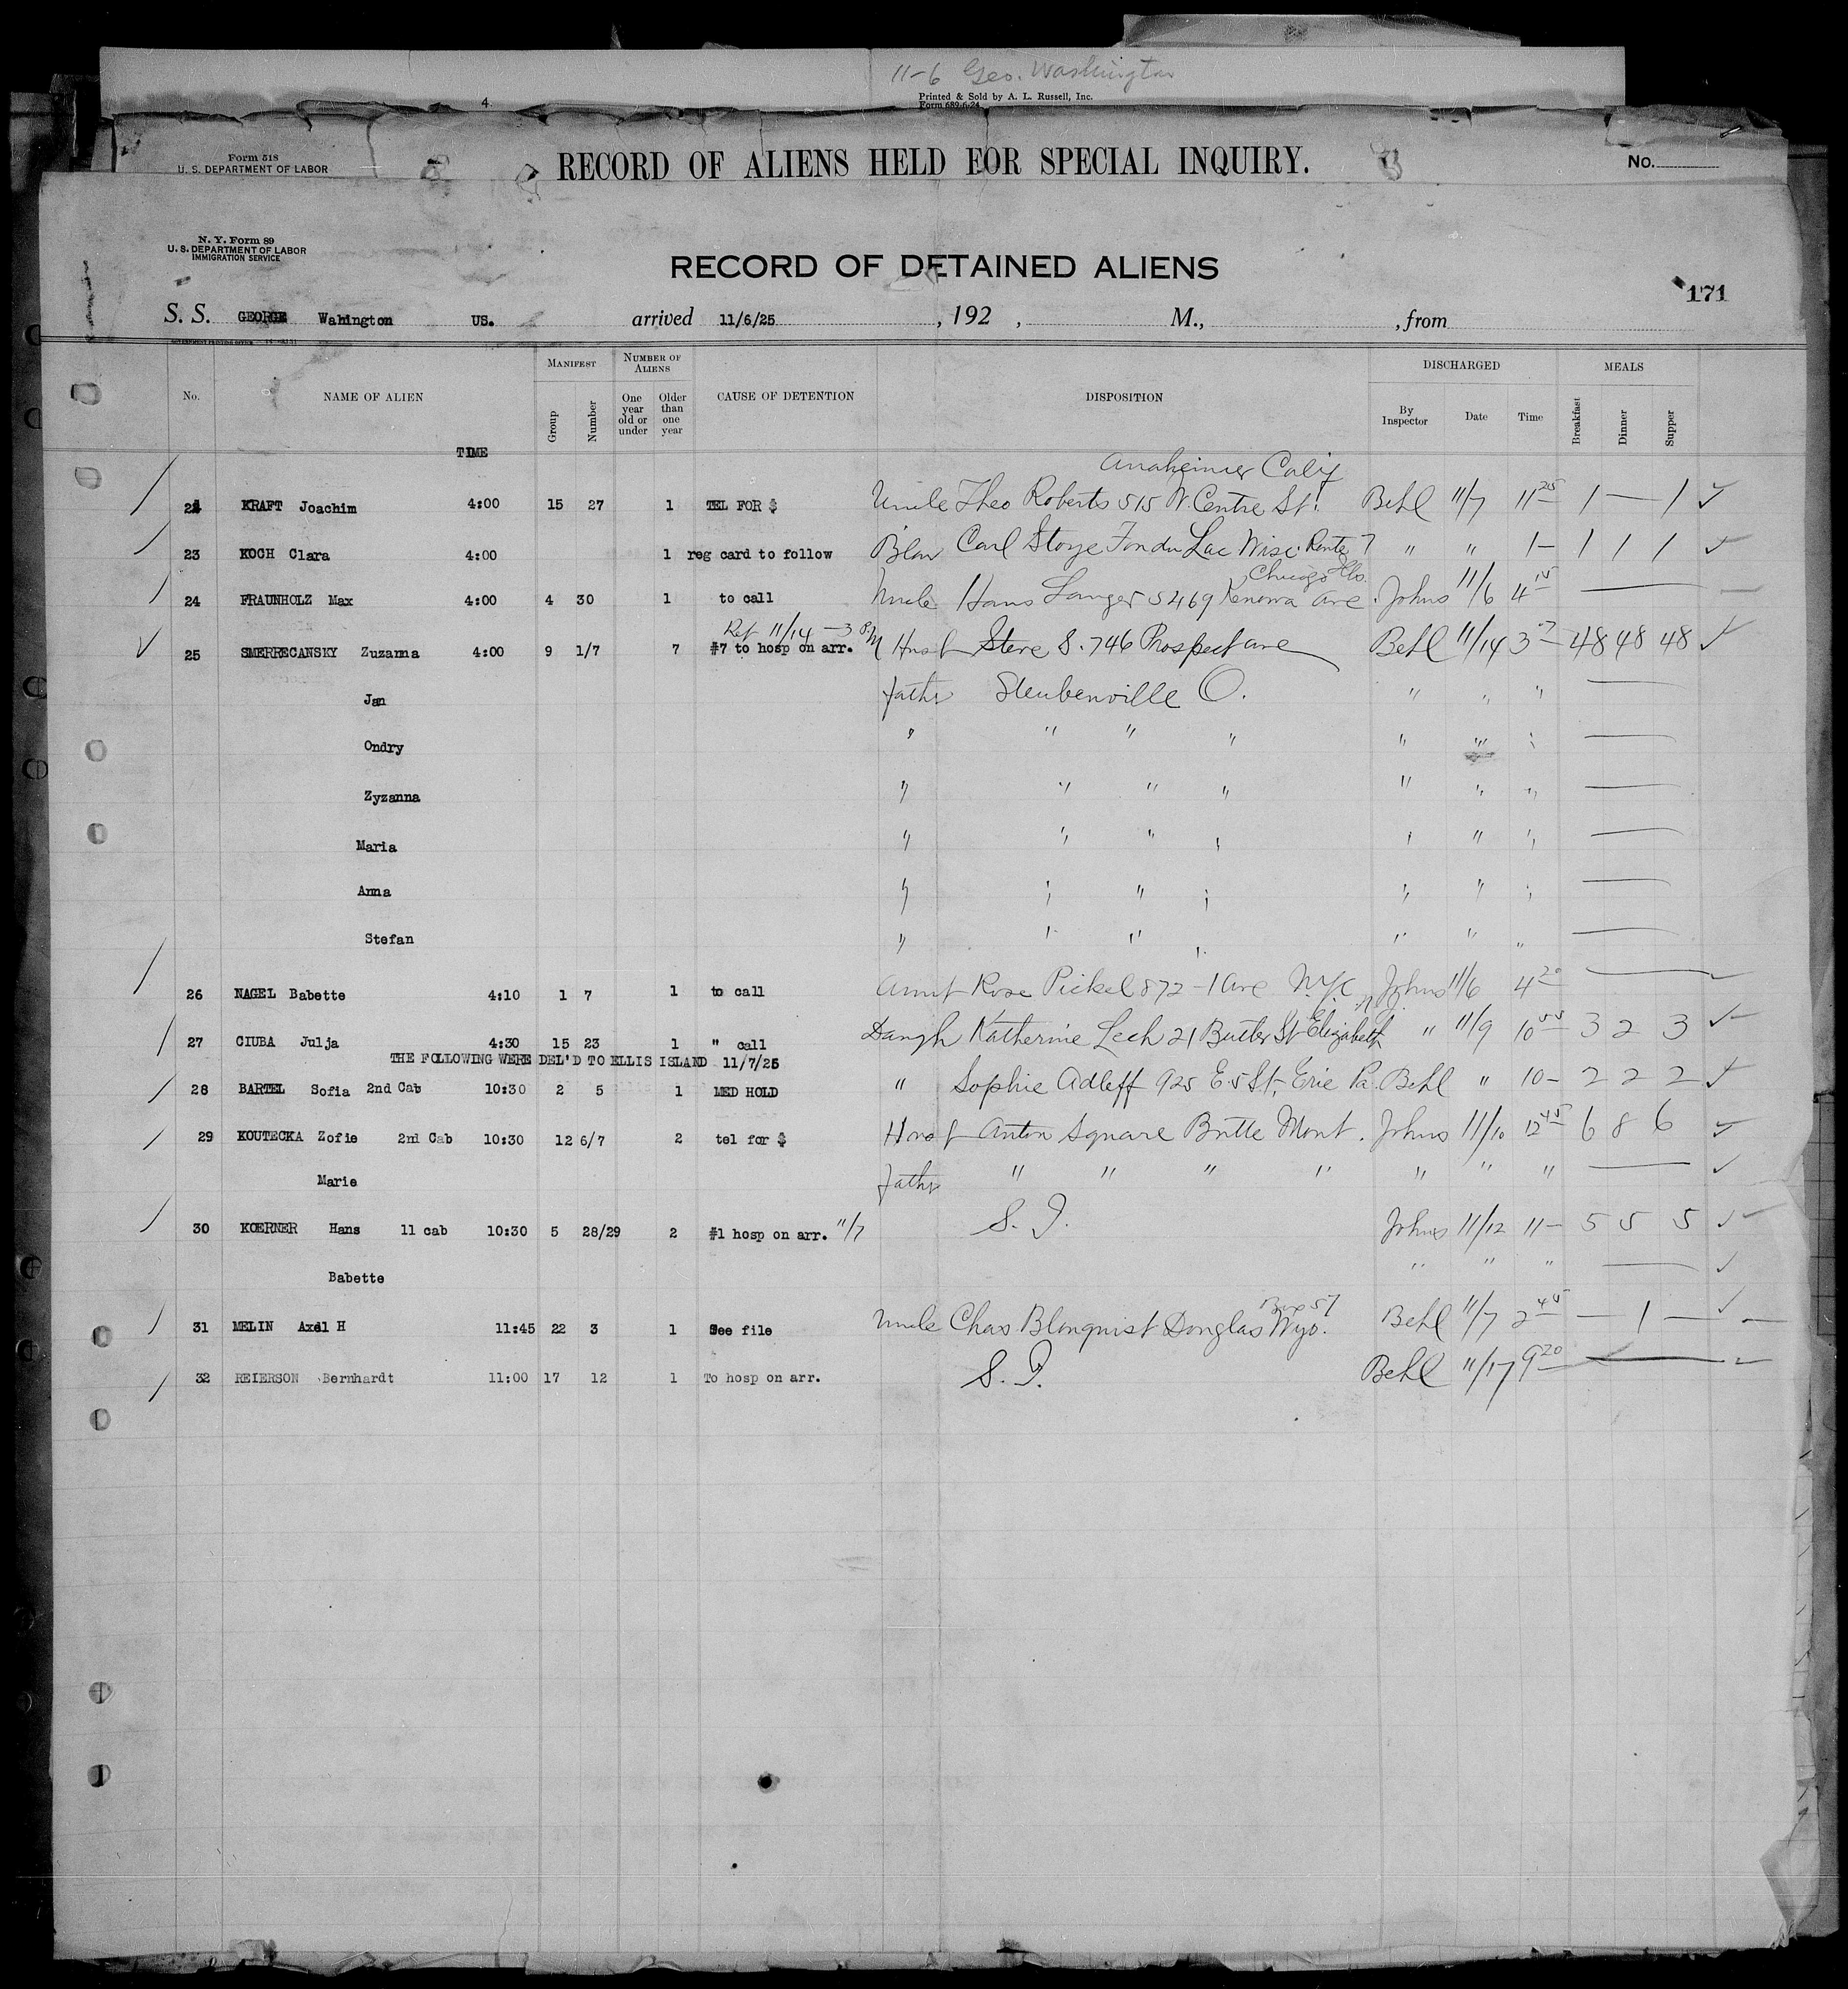 11-6 Geo. Washington
4.
Printed & Sold by A. L. Russell, Inc.
Form 689-6-24
Form 518
U. S. DEPARTMENT OF LABOR
RECORD OF ALIENS HELD FOR SPECIAL INQUIRY.
No.
N. Y. Form 89
U. S. DEPARTMENT OF LABOR
IMMIGRATION SERVICE
RECORD OF DETAINED ALIENS
171
S. S. GEORGE Wahington US. arrived 11/6/25, 192 , M., , from
No. NAME OF ALIEN MANIFEST Group Number NUMBER OF ALIENS One year old or under Older than one year CAUSE OF DETENTION DISPOSITION DISCHARGED By Inspector Date Time MEALS Breakfast Dinner Supper
TIME
Anaheimer Calif
KRAFT Joachim 4:00 15 27 1 TEL FOR $ Uncle Theo Roberts 515 W. Centre St. Behl 11/7 11 25 1 — 1 ✓
23 KOCH Clara 4:00 1 reg card to follow Carl Stoye Fondu Lac Wisc. Route 7 " " 1 — 1 1 1 ✓
Chicago Ills.
24 FRAUNHOLZ Max 4:00 4 30 1 to call Uncle Hans Langer 5469 Kenova Ave. Johns 11/6 4 15 —
Ret 11/14 — 3 PM
25 SMERRECANSKY Zuzanna 4:00 9 1/7 7 #7 to hosp on arr. Husb Steve S. 746 Prospect ave Behl 11/14 3 — 48 48 48 ✓
Jan fathr Steubenville O. " " " —
Ondry " " " " " " " —
Zyzanna " " " " " " " —
Maria " " " " " " " —
Anna " " " " " " " —
Stefan " " " " " " " —
26 NAGEL Babette 4:10 1 7 1 to call Aunt Rose Pickel 872 - 1 Ave N.Y.C. Johns 11/6 4 20 —
N.J.
27 CIUBA Julja 4:30 15 23 1 " call Daugh Katherine Lech 21 Butler St Elizabeth " 11/9 10 55 3 2 3 ✓
THE FOLLOWING WERE DEL'D TO ELLIS ISLAND 11/7/25
28 BARTEL Sofia 2nd Cab 10:30 2 5 1 MED HOLD " Sophie Adleff 925 E. 5 St, Erie Pa. Behl " 10 — 2 2 2 ✓
29 KOUTECKA Zofie 2nd Cab 10:30 12 6/7 2 tel for $ Husb Anton Square Butte Mont. Johns 11/10 12 45 6 8 6 ✓
Marie fathr " " " " " " " — ✓
30 KOERNER Hans 11 cab 10:30 5 28/29 2 #1 hosp on arr. 11/7 S. I. Johns 11/12 11 — 5 5 5 ✓
Babette " " " — ✓
Box 57
31 MELIN Axel H 11:45 22 3 1 See file Uncle Chas. Blonquist Douglas Wyo. Behl 11/7 2 45 — 1 — ✓
32 REIERSON Bernhardt 11:00 17 12 1 To hosp on arr. S. I. Behl 11/17 9 20 —